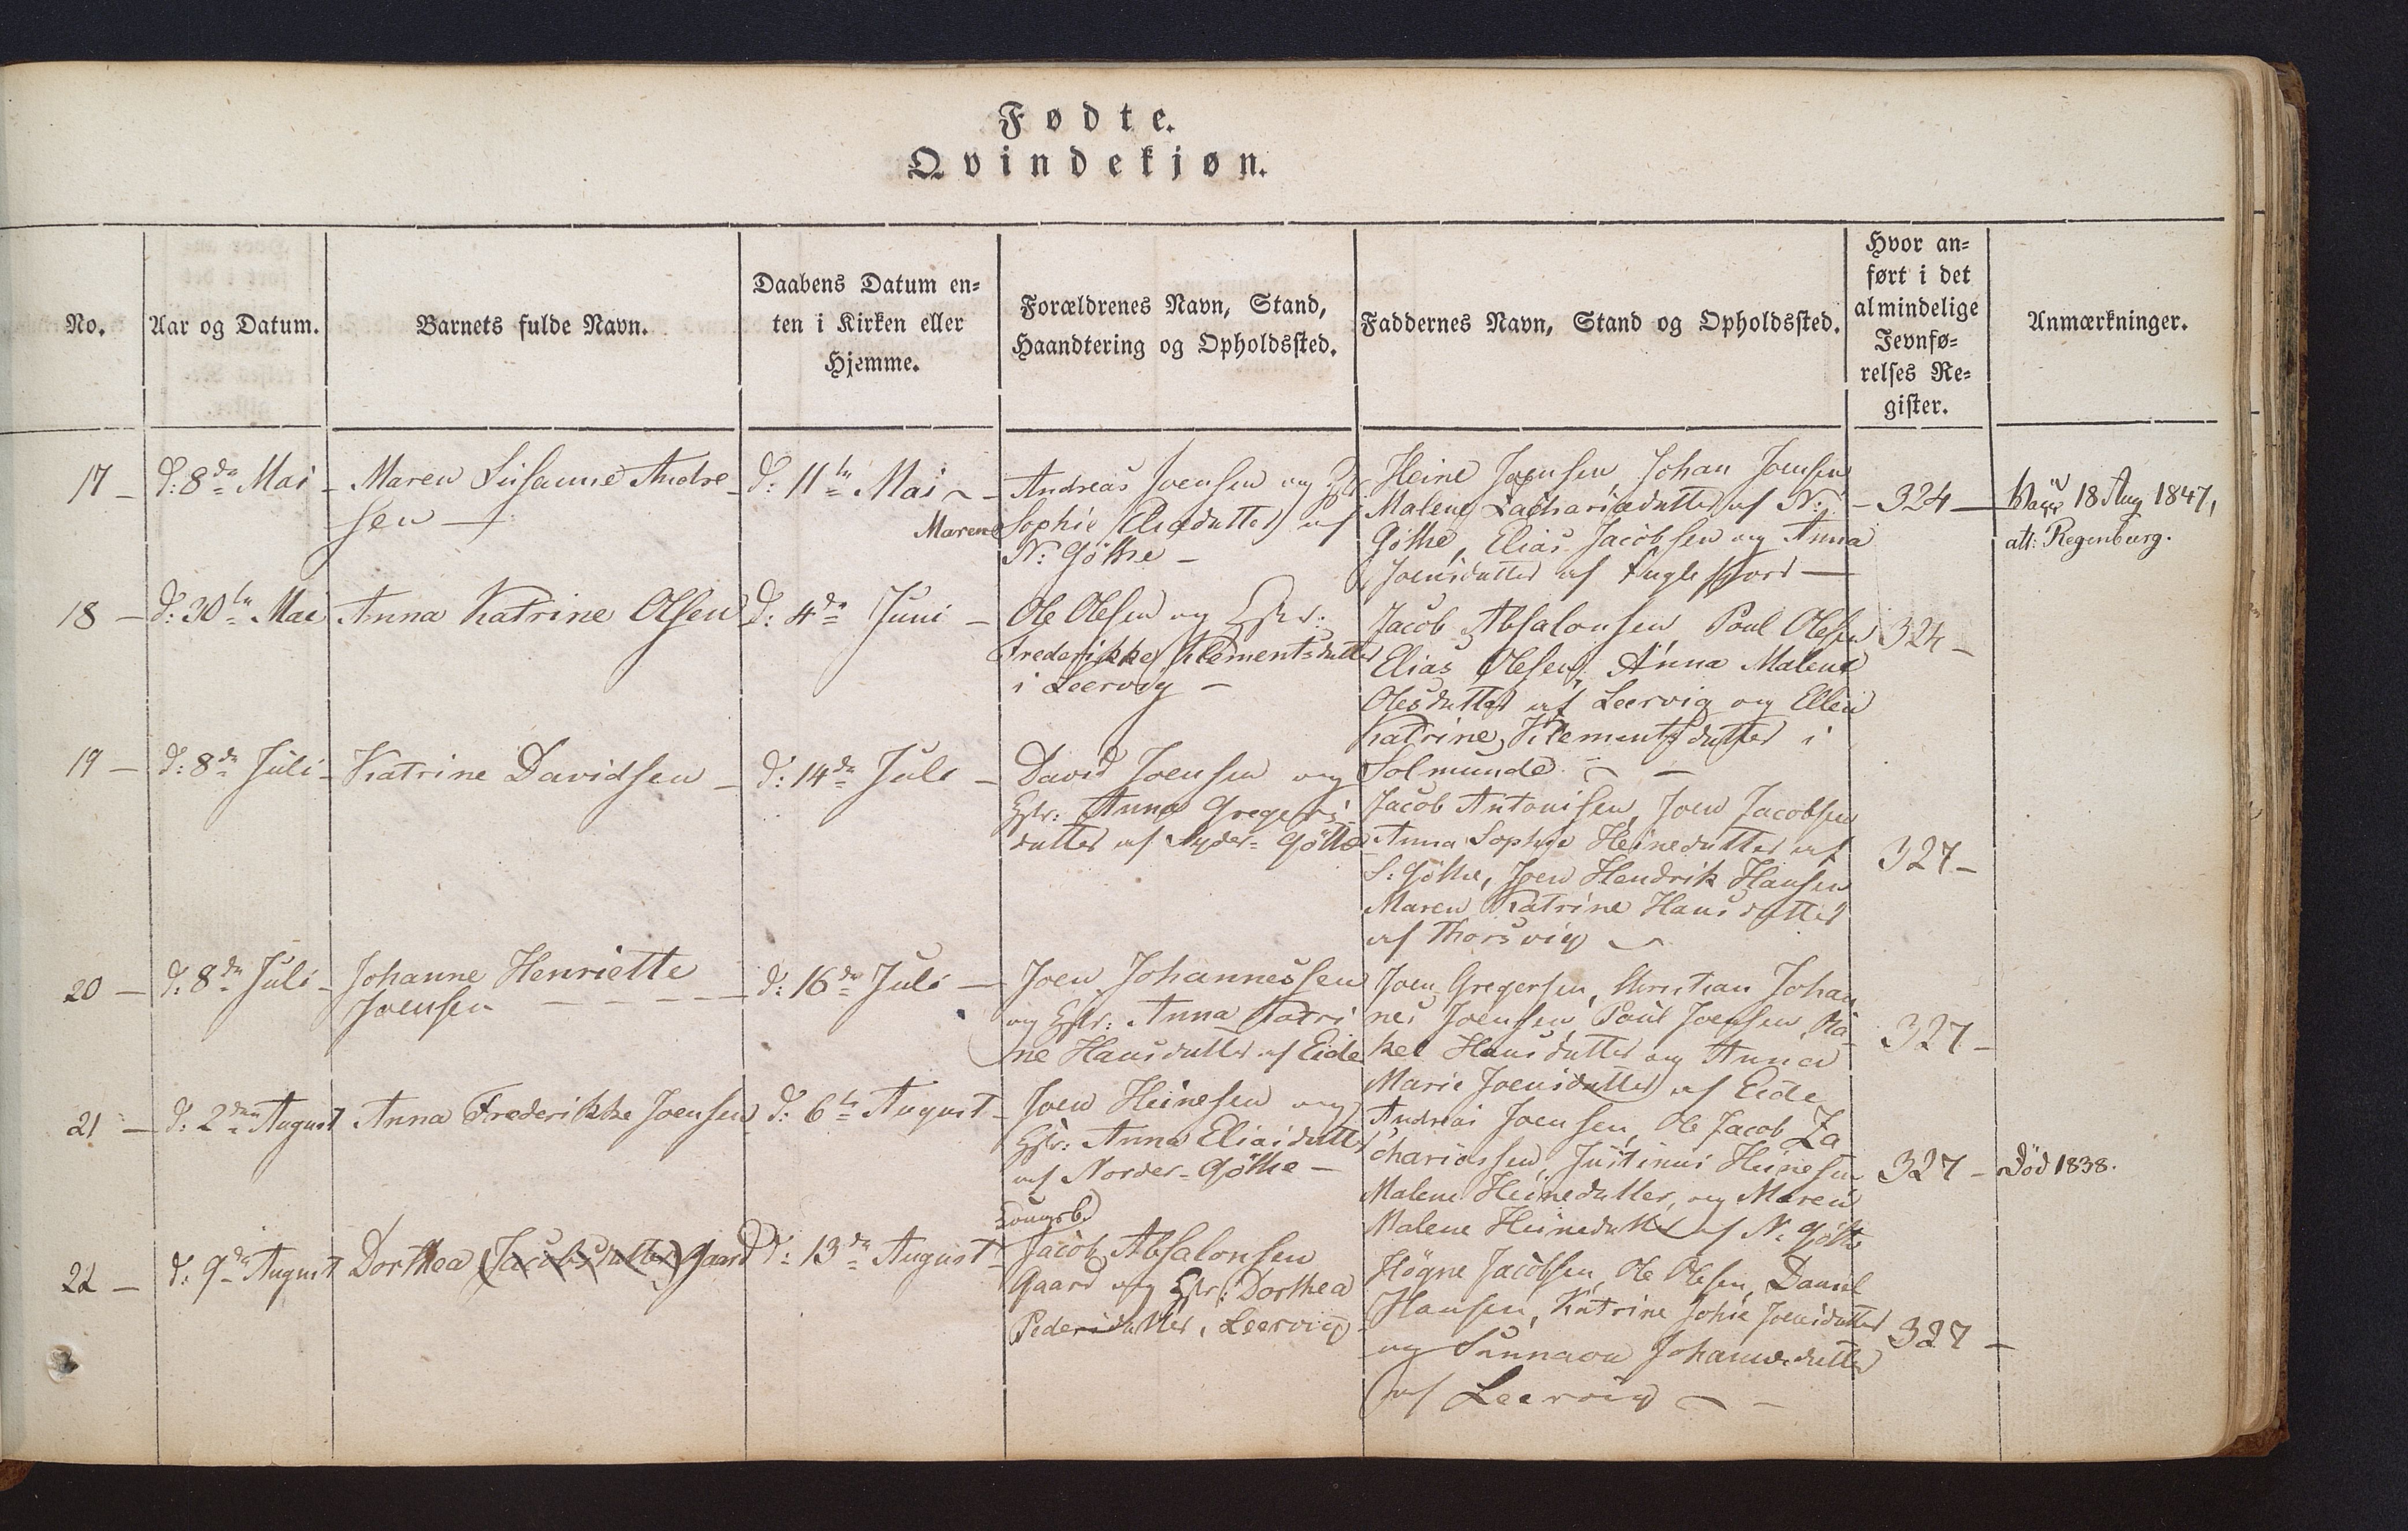 Fødte.
Qvindekjøn.
No.
Aar og Datum.
Barnets fulde Navn.
Daabens Datum en=
ten i Kirken eller
Hjemme.
Forældrenes Navn, Stand,
Haandtering og Opholdssted.
Faddernes Navn, Stand og Opholdssted.
Hvor an=
ført i det
almindelige
Jevnfø=
relses Re=
gister.
Anmærkninger.
17 –
d: 8de Mai –
Maren Susanne Andre-
sen –
d: 11te Mai –
Andreas Joensen og Hstr
Marene Sophie Elisædatter af
N: Göthe –
Heine Joensen, Johan Joensen
Malene Zachariædatter af N:
Göthe, Elias Jacobsen og Anna
Joensdatter af Fuglefjord –
– 324 –
Vacc 18 Aug 1847,
att: Regenburg.
18 –
d: 30te Mai
Anna Katrine Olsen
d: 4de Juni –
Ole Olesen og Hstr:
Frederikke Klementsdatter
i Leervig –
Jacob Absalonsen, Poul Olesen
Elias Olesen, Anna Malene
Olesdatter af Leervig og Ellen
Katrine Klementsdatter i
Solmunde –
324 –
19 –
d: 8de Juli –
Katrine Davidsen –
d: 14de Juli –
David Joensen og
Hstr: Anna Gregers-
datter af Syder= Göthe
Jacob Antonisen, Joen Jacobsen
Anna Sophie Heinedatter af
S: Göthe, Joen Hendrik Hansen
Maren Katrine Hansdatter
af Thorsvig –
327 –
20 –
d: 8de Juli –
Johanne Henriette
Joensen – – – –
d: 16de Juli –
Joen Johannessen
og Hstr: Anna Katri
ne Hansdatter af Eide
Joen Gregersen, Christian Johan
nes Joensen, Poul Joensen, Ra-
kel Hansdatter og Anna
Marie Joensdatter af Eide
327 –
21 –
d: 2den August
Anna Frederikke Joensen
d: 6te August –
Joen Heinesen og
Hstr: Anna Eliasdatter
af Norder= Göthe –
Andreas Joensen, Ole Jacob Za
chariassen, Justinus Heinesen
Malene Heinedatter, og Maren
Malene Heinedatter af N. Göthe
327 –
Död 1838.
22 –
d: 9de August
Dorthea (Jacobsdatter) Gaard
d: 13de August –
Jacob Absalonsen
Gaard og Hstr: Dorthea
Pedersdatter, Leervig
Högne Jacobsen, Ole Olesen, Daniel
Hansen, Katrine Sofie Joensdatter
og Sunnava Johannesdatter
af Leervig –
327 –